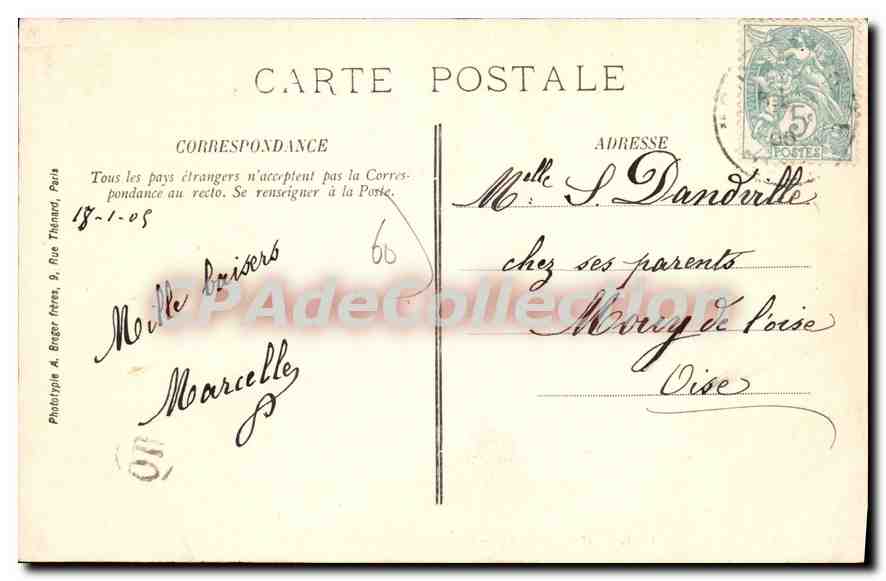 CARTE POSTALE
CORRESPONDANCE
Tous les pays étrangers n'acceptent pas la Corres-
pondance au recto. Se renseigner à la Poste.
18-1-05
60
Mille baisers
Marcelle
OR
Phototypie A. Breger frères, 9, Rue Thénard, Paris
ADRESSE
Melle S. Dandville
chez ses parents
Mouy de l'oise
Oise
5c
POSTES
CPAdeCollection.com